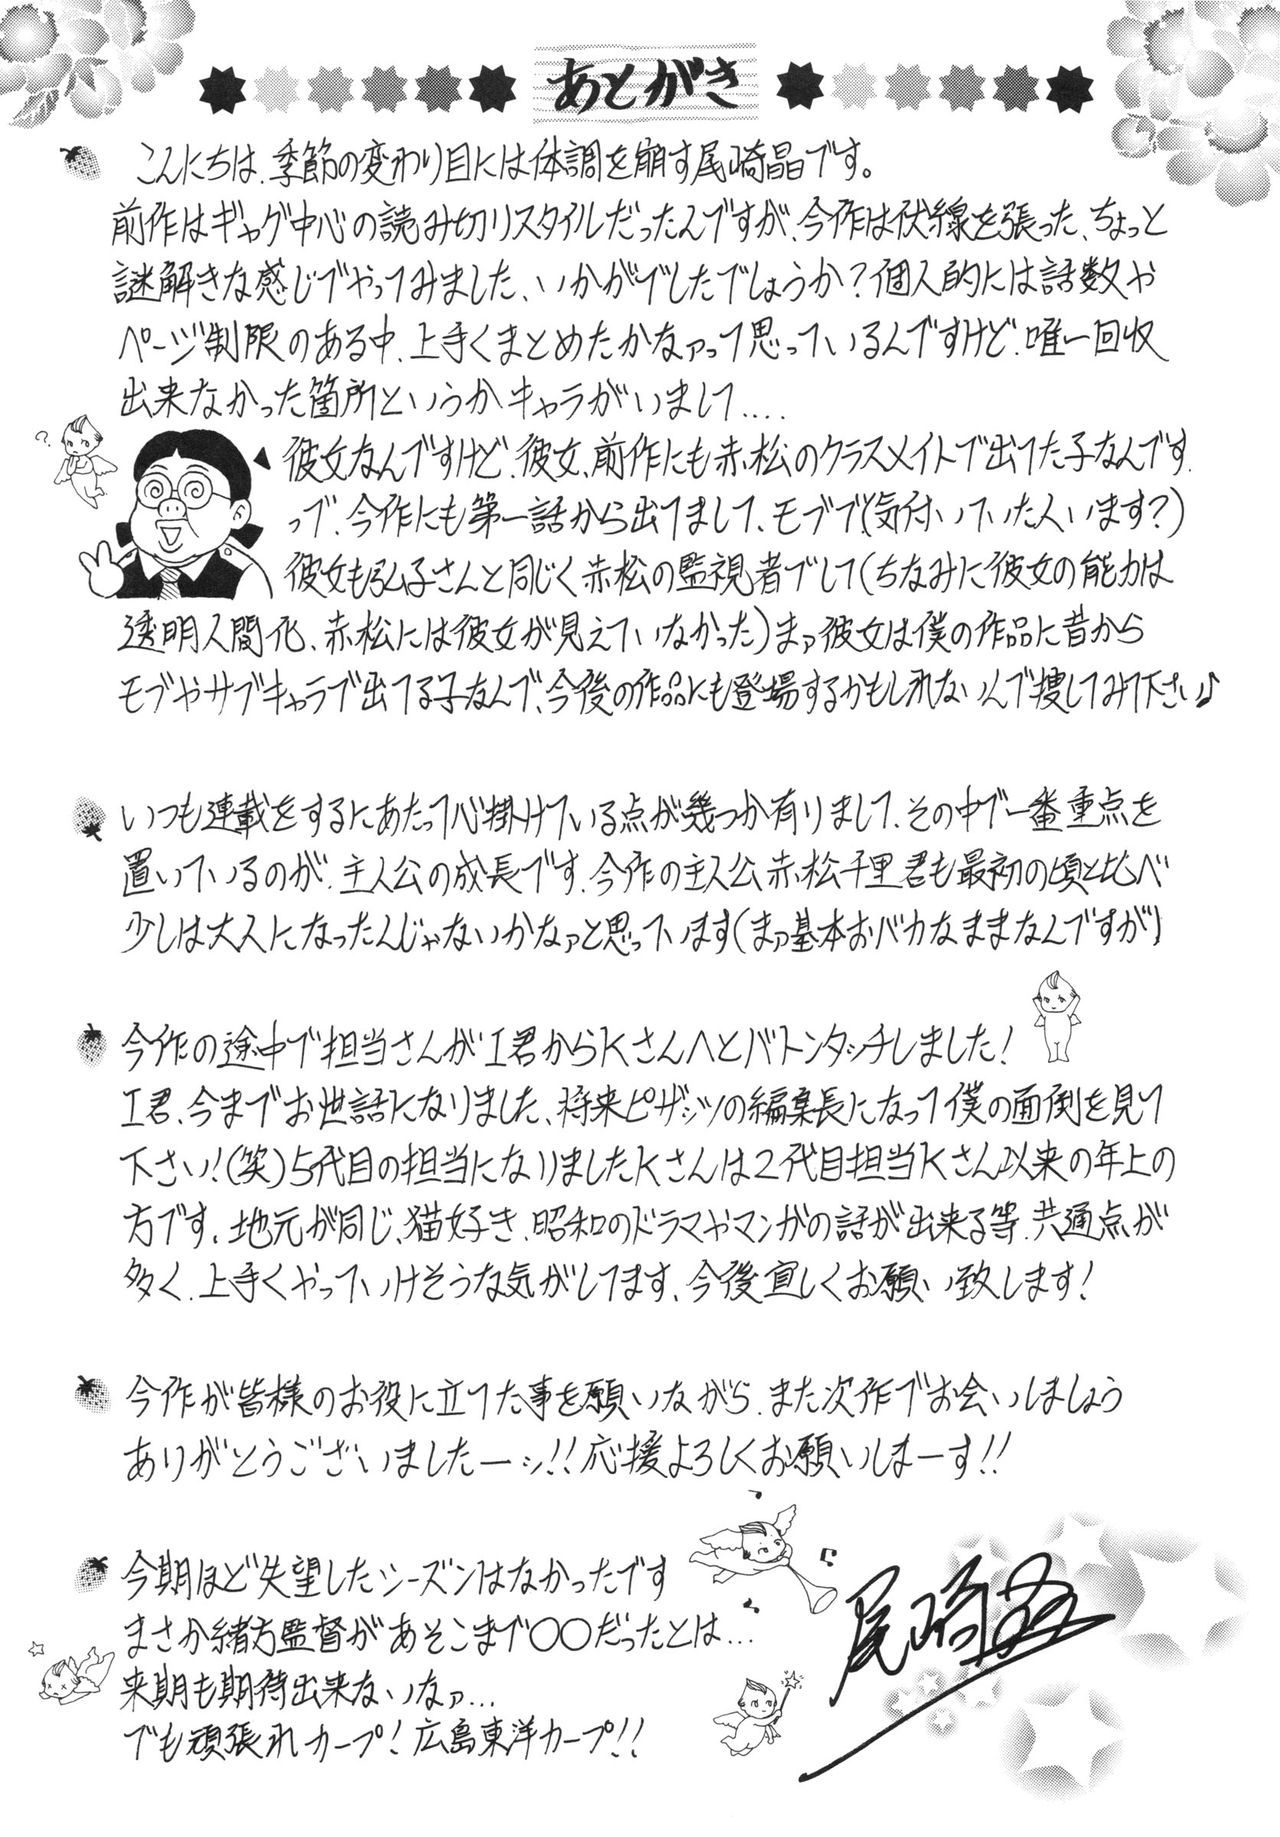 あとがき
こんにちは、季節の変わり目には体調を崩す尾崎晶です。
前作はギャグ中心の読み切りスタイルだったんですが、今作は伏線を張った、ちょっと
謎解きな感じでやってみました、いかがでしたでしょうか?個人的には話数や
ページ制限のある中、上手くまとめたかなァって思っているんですけど、唯一回収
出来なかった箇所というかキャラがいまして....
彼女なんですけど、彼女、前作にも赤松のクラスメイトで出てた子なんです、
っで、今作にも第一話から出てまして、モブで(気付いていた人います?)
彼女も弘子さんと同じく赤松の監視者でして(ちなみに彼女の能力は
透明人間化、赤松には彼女が見えていなかった)まァ彼女は僕の作品に昔から
モブやサブキャラで出てる子なんで、今後の作品にも登場するかもしれないんで捜してみて下さい♪
いつも連載をするにあたって心掛けている点が幾つか有りまして、その中で一番重点を
置いているのが、主人公の成長です、今作の主人公赤松千里君も最初の頃と比べ
少しは大人になったんじゃないかなァと思っています(まァ基本おバカなままなんですが)
今作の途中で担当さんがI君からKさんへとバトンタッチしました!
I君、今までお世話になりました、将来ピザッツの編集長になって僕の面倒を見て
下さい!(笑)5代目の担当になりましたKさんは2代目担当Kさん以来の年上の
方です、地元が同じ、猫好き、昭和のドラマやマンガの話が出来る等、共通点が
多く、上手くやっていけそうな気がしてます、今後宜しくお願い致します!
今作が皆様のお役に立てた事を願いながら、また次作でお会いしましょう
ありがとうございましたーッ!!応援よろしくお願いしまーす!!
今期ほど失望したシーズンはなかったです
まさか緒方監督があそこまで○○だったとは...
来期も期待出来ないなァ...
でも頑張れカープ!広島東洋カープ!!
尾崎晶